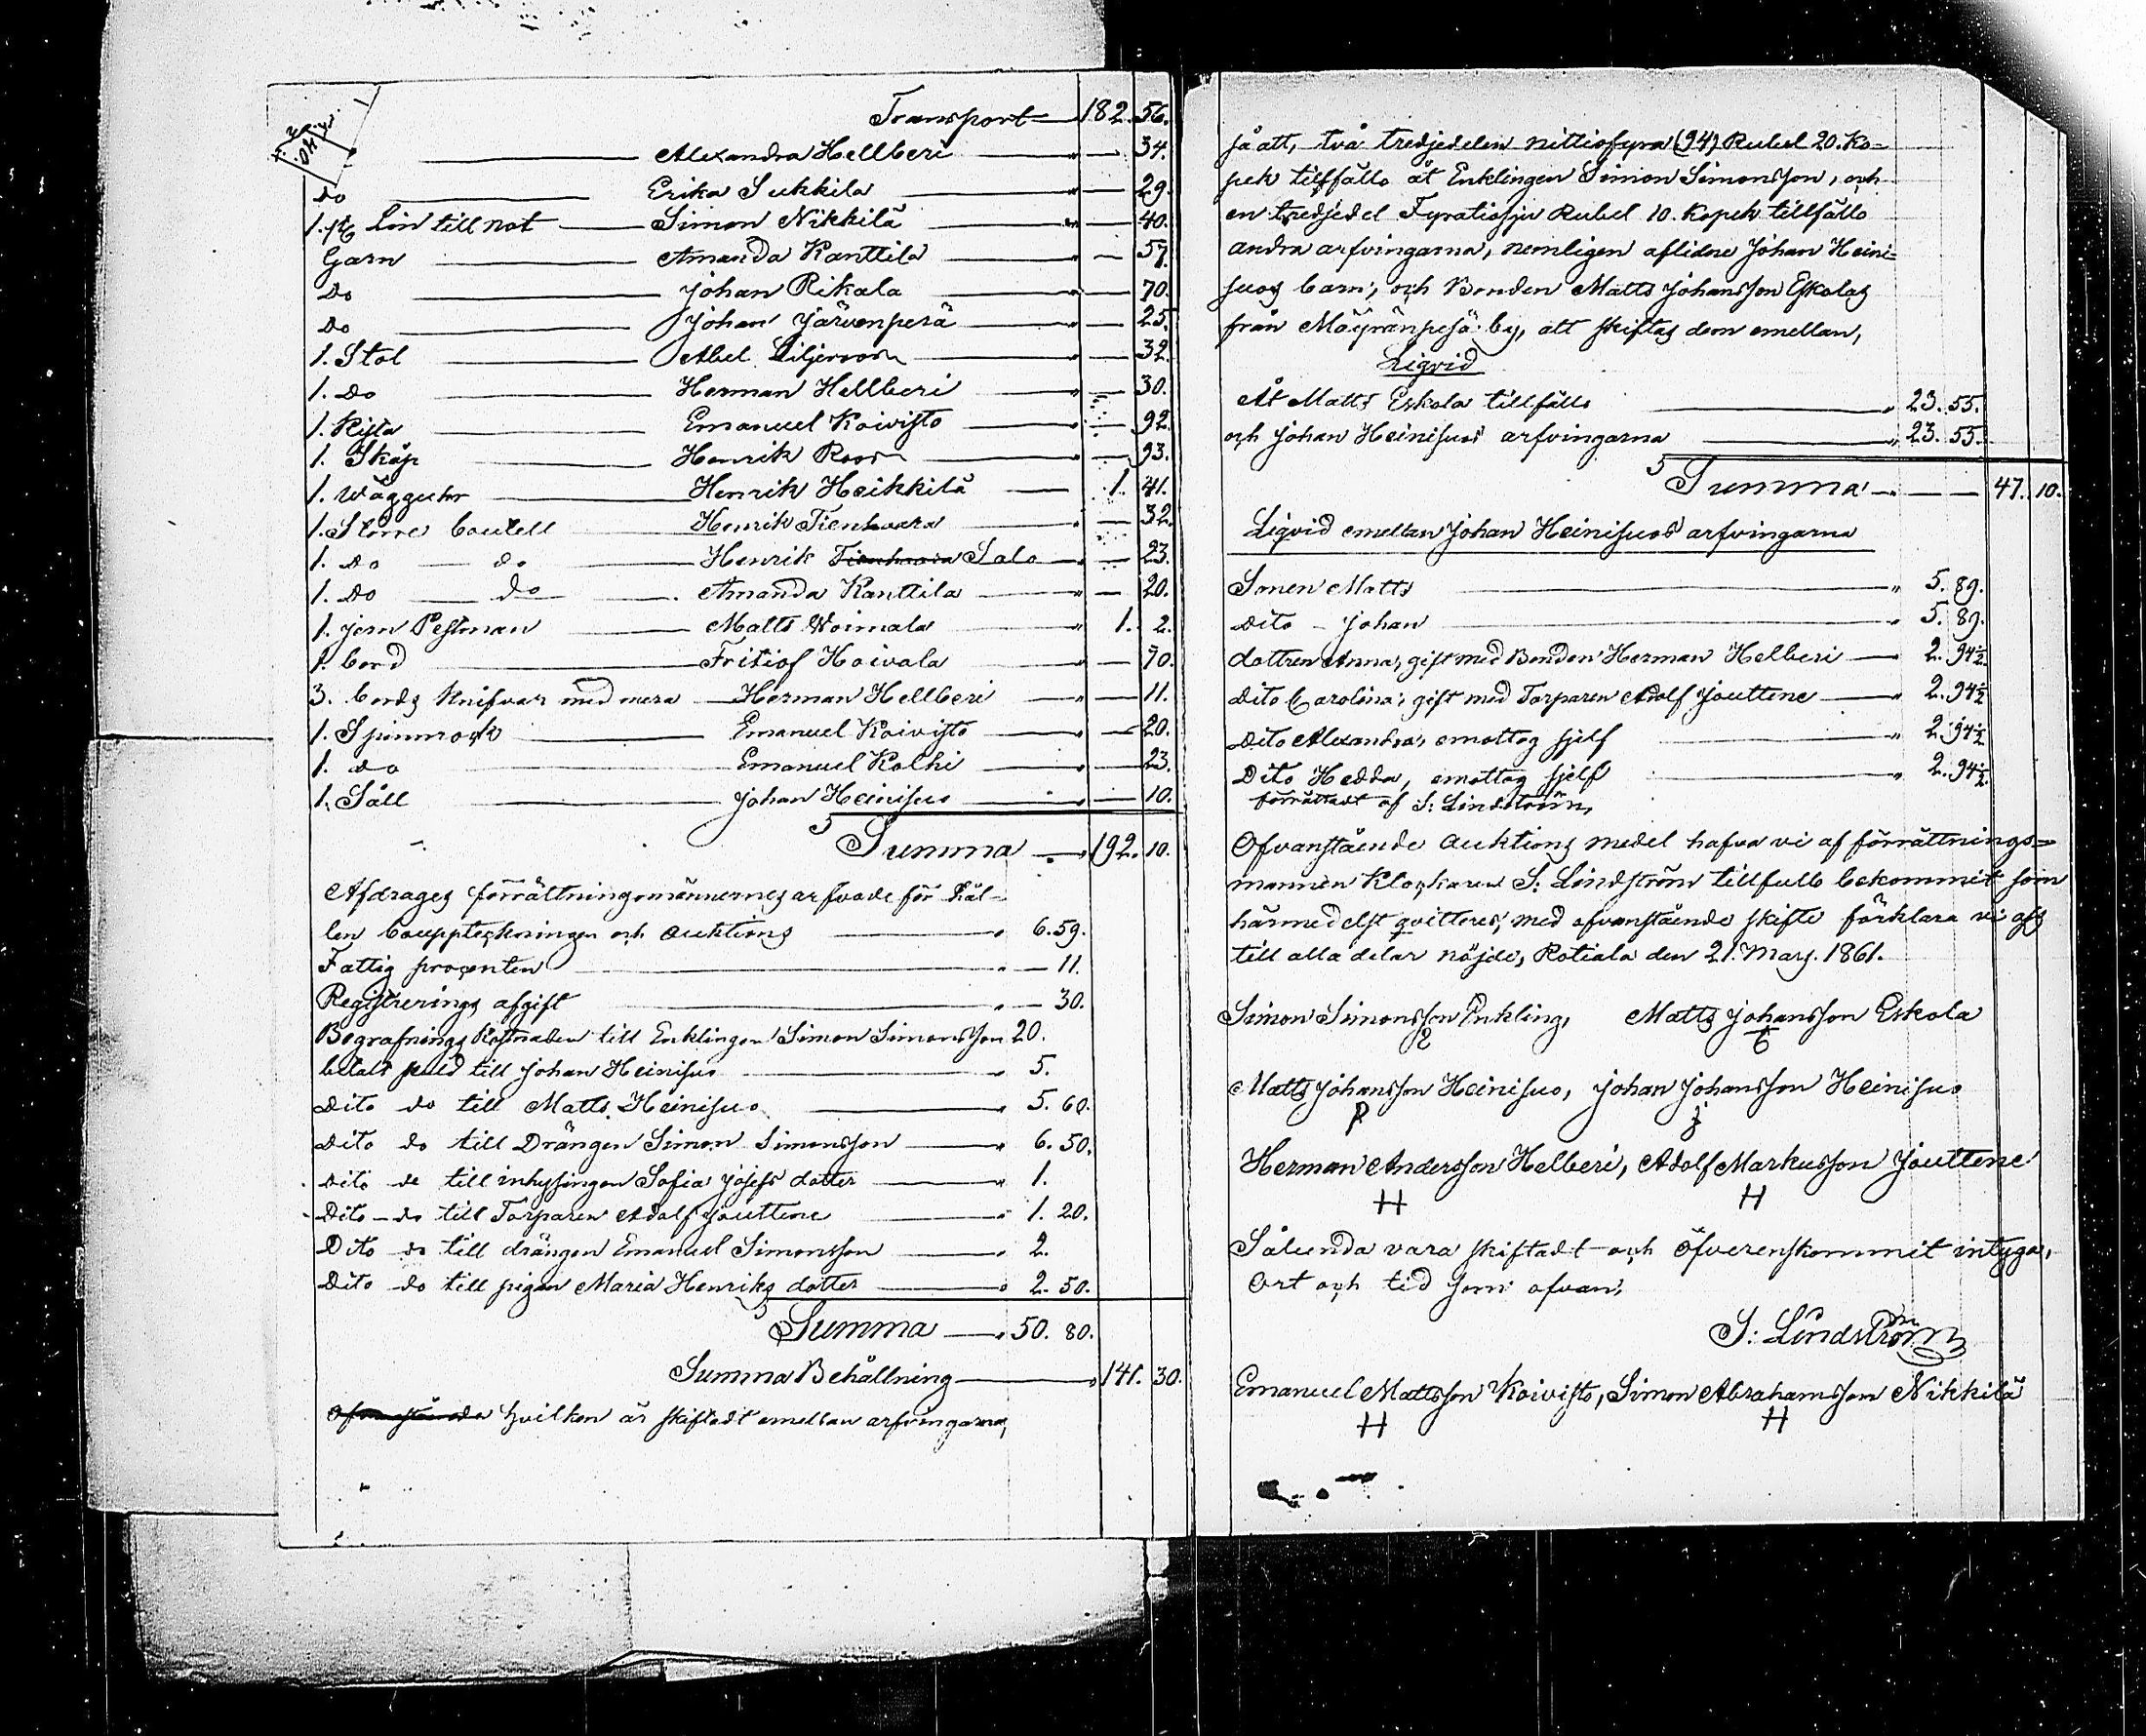 Transport 182. 56.
Alexandra Hellberi " — 34.
do Erika Sukkila " — 29.
1. st. Lin till not Simon Nikkilä " — 40.
Garn Amanda Kanttila " — 57.
Do Johan Rikala " — 70.
do Johan Järvenperä " — 25.
1. Stol Abel Liljeroos " — 32.
1. Do Herman Hellberi " — 30.
1. Kista Emanuel Koivisto " — 92.
1. Skåp Henrik Roos " — 93.
1. Wägguhr Henrik Heikkilä 1. 41.
1. Större boutell Henrik Tienhaara " — 32.
1. do do Henrik Tienhaara Salo " — 23.
1. do do Amanda Kanttila " — 20.
1. jern Pestman Matts Woimala " 1. 2.
1. bord Fritiof Hoivala " — 70.
3. bords knifvar med mera Herman Hellberi " — 11.
1. Spinnrock Emanuel Koivisto " — 20.
1. do Emanuel Kolhi " — 23.
1. Såll Johan Heinisuo " — 10.
Summa 192. 10.
Afdrages förrättningsmännernes arfvode för hål-
len bouppteckningen och auktions " 6. 59.
Fattig procenten " — 11.
Registrerings afgift " — 30.
Begrafnings kostnaden till Enklingen Simon Simonsson 20.
betalt skuld till Johan Heinisuo " 5.
Dito do till Matts Heinisuo " 5. 60.
Dito do till Drängen Simon Simonsson " 6. 50.
Dito do till inhysingen Sofia Josefs dotter " 1.
Dito do till Torparen Adolf Jouttene " 1. 20.
Dito do till drängen Emanuel Simonsson " 2.
Dito do till pigan Maria Henriks dotter " 2. 50.
Summa " 50. 80.
Summa Behållning " 141. 30.
Ofvanstående hvilken är skiftadt emellan arfvingarna,
så att, två tredjedelen nittiofyra (94) Rubel 20. Ko=
pek tillfalls åt Enklingen Simon Simonsson, och
en tredjedel Fyratiosju Rubel 10. Kopek tillfälls
andra arfvingarna, nemligen aflidne Johan Heini=
suos barn, och Bonden Matts Johansson Eskolas
från Mäyränpesä by, att skiftas dem emellan,
Liqvid
Åt Matts Eskola tillfälls " 23. 55.
och Johan Heinisuos arfvingarna " 23. 55.
Summa 47. 10.
Liqvid emellan Johan Heinisuos arfvingarna
Sonen Matts " 5. 89.
Dito – Johan " 5. 89.
dottren Anna, gift med Bonden Herman Helberi " 2. 94½
Dito Carolina, gift med Torparen Adolf Jouttene " 2. 94½
Dito Alexandra, emottog sjelf " 2. 94½
Dito Hedda, emottog sjelf " 2. 94½
förrättadt af S: Lindström,
Ofvanstående auktions medel hafva vi af förrättnings=
mannen Klockaren S: Lindström tillfullo bekommit som
härmedelst qvitteres, med ofvanstående skifte förklara vi oss
till alla delar nöjde, Rotiala den 21. Mars. 1861.
Simon Simonsson Enkling, Matts Johansson Eskola
Matts Johansson Heinisuo, Johan Johansson Heinisuo
Herman Andersson Helberi, Adolf Markusson Jouttene
H H
Sålunda vara skiftadt och öfverenskommit intyga,
Ort och tid som ofvan,
S: Lindström
Emanuel Mattsson Koivisto, Simon Abrahamsson Nikkilä
H H